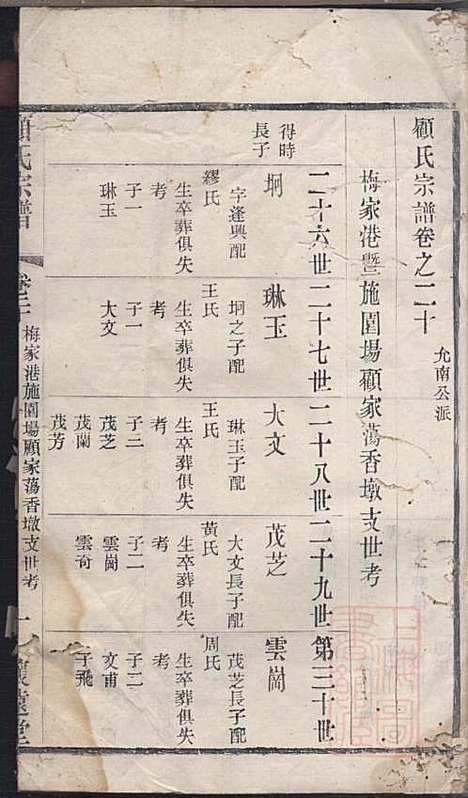 顧氏宗譜卷之二十
允南公派
梅家港暨施園場顧家蕩香墩支世考
二十六世
二十七世
二十八世
二十九世
第三十世
得時
長子
坰
字逢興配
繆氏
生卒葬俱失
考
子一
琳玉
琳玉
坰之子配
王氏
生卒葬俱失
考
子一
大文
大文
琳玉子配
王氏
生卒葬俱失
考
子三
茂芝
茂蘭
茂芳
茂芝
大文長子配
黃氏
生卒葬俱失
考
子二
雲崗
雲奇
雲崗
茂芝長子配
周氏
生卒葬俱失
考
子二
文甫
子飛
顧氏宗譜
梅家港施園場顧家蕩香墩支世考